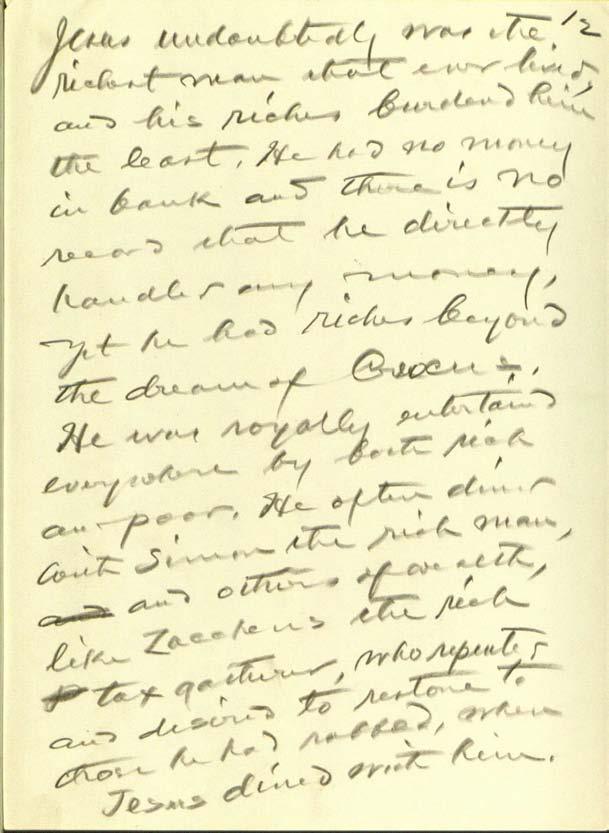 12
Jesus undoubtedly was the
richest man that ever lived,
and his riches burdend him
the least. He had no money
in bank and there is no
record that he directly
handled any money,
yet he had riches beyond
the dream of Croexus.
He was royally entertaind
everywhere by both rich
and poor. He often dined
with Simon the rich man,
and others of wealth,
like Zaccheus the rich
tax gatherer, who repented
and desired to restore to
those he had robbed, when
Jesus dined with him.